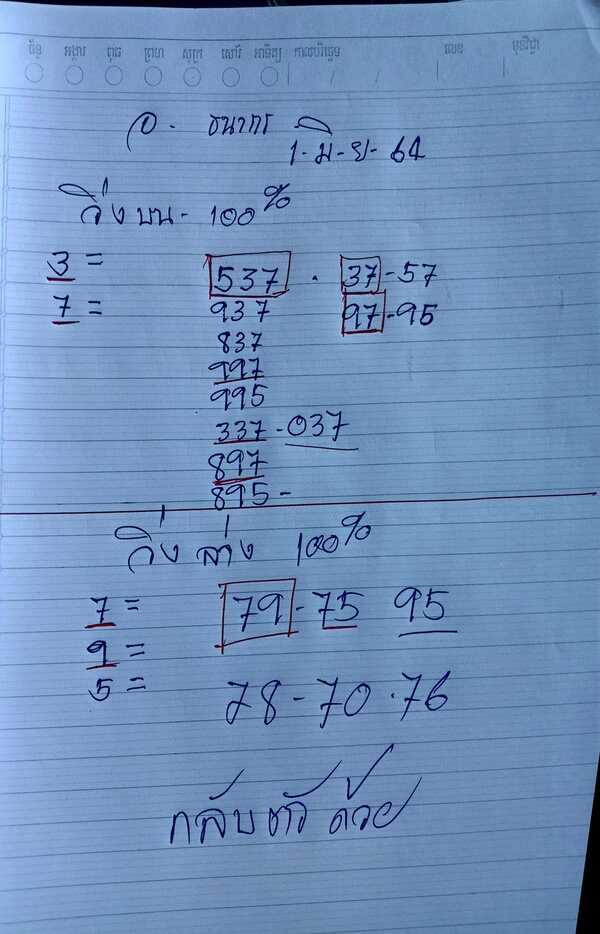 ច័ន្ទ អង្គារ ពុធ ព្រហ សុក្រ សៅរ៍ អាទិត្យ កាលបរិច្ឆេទ / / លេខ មុខវិជ្ជា
อ. ธนากร
1-มิ-ย-64
วิ่งบน - 100%
3 = 537 . 37-57
7 = 937 97-95
837
997
995
337-037
897
895-
วิ่งล่าง 100%
7 = 79-75 95
9 =
5 = 78-70.76
กลับตัวด้วย